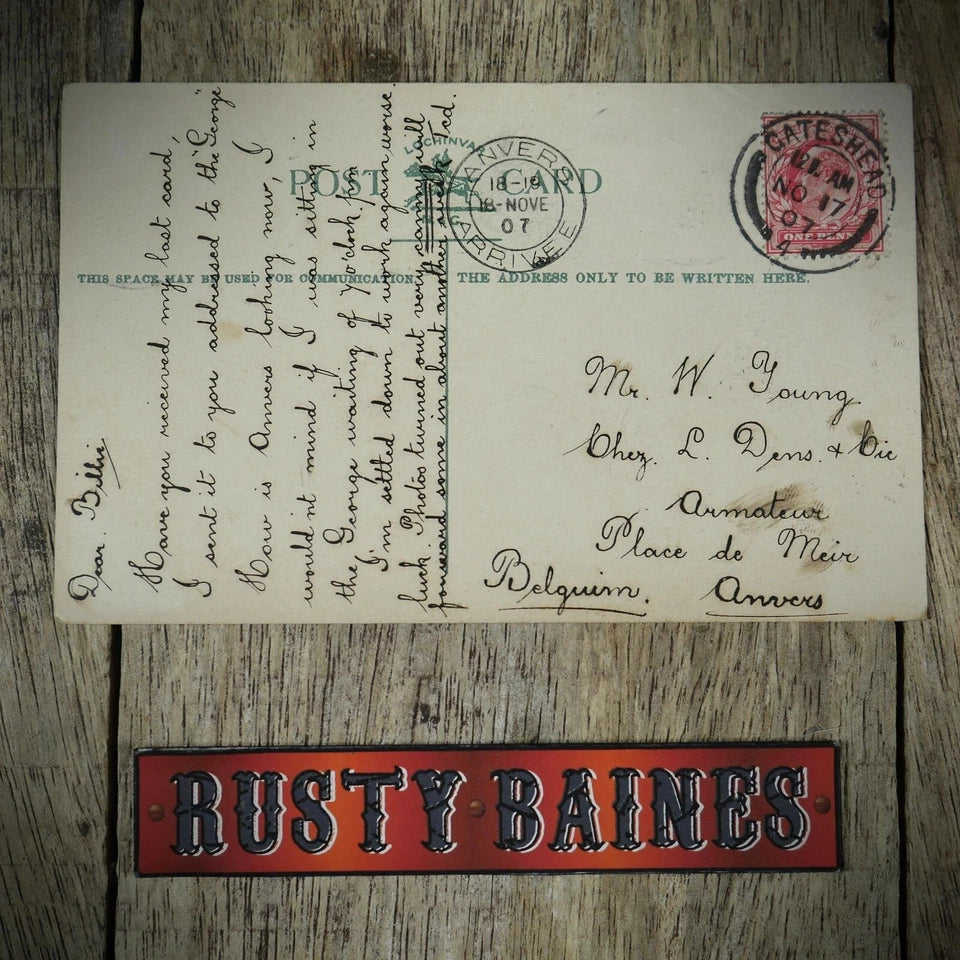 POST CARD
LOCHINVAR
THIS SPACE MAY BE USED FOR COMMUNICATION.
THE ADDRESS ONLY TO BE WRITTEN HERE.
ANVERS
18-19
18-NOVE
07
ARRIVEE
GATESHEAD
12 AM
NO 17
07
ONE PENNY
Dear. Billie
Have you received my last card,
I sent it to you addressed to the "George"
How is Anvers looking now, I
would nt mind if I was sitting in
the George waiting of 7 o'clock. pm
I'm settled down to work again worse.
luck. Photos turned out very canny will
forward some in about another week Ted.
Mr. W. Young
Chez. L. Dens. & Cie
Armateur
Place de Meir
Anvers
Belguim.
RUSTY BAINES